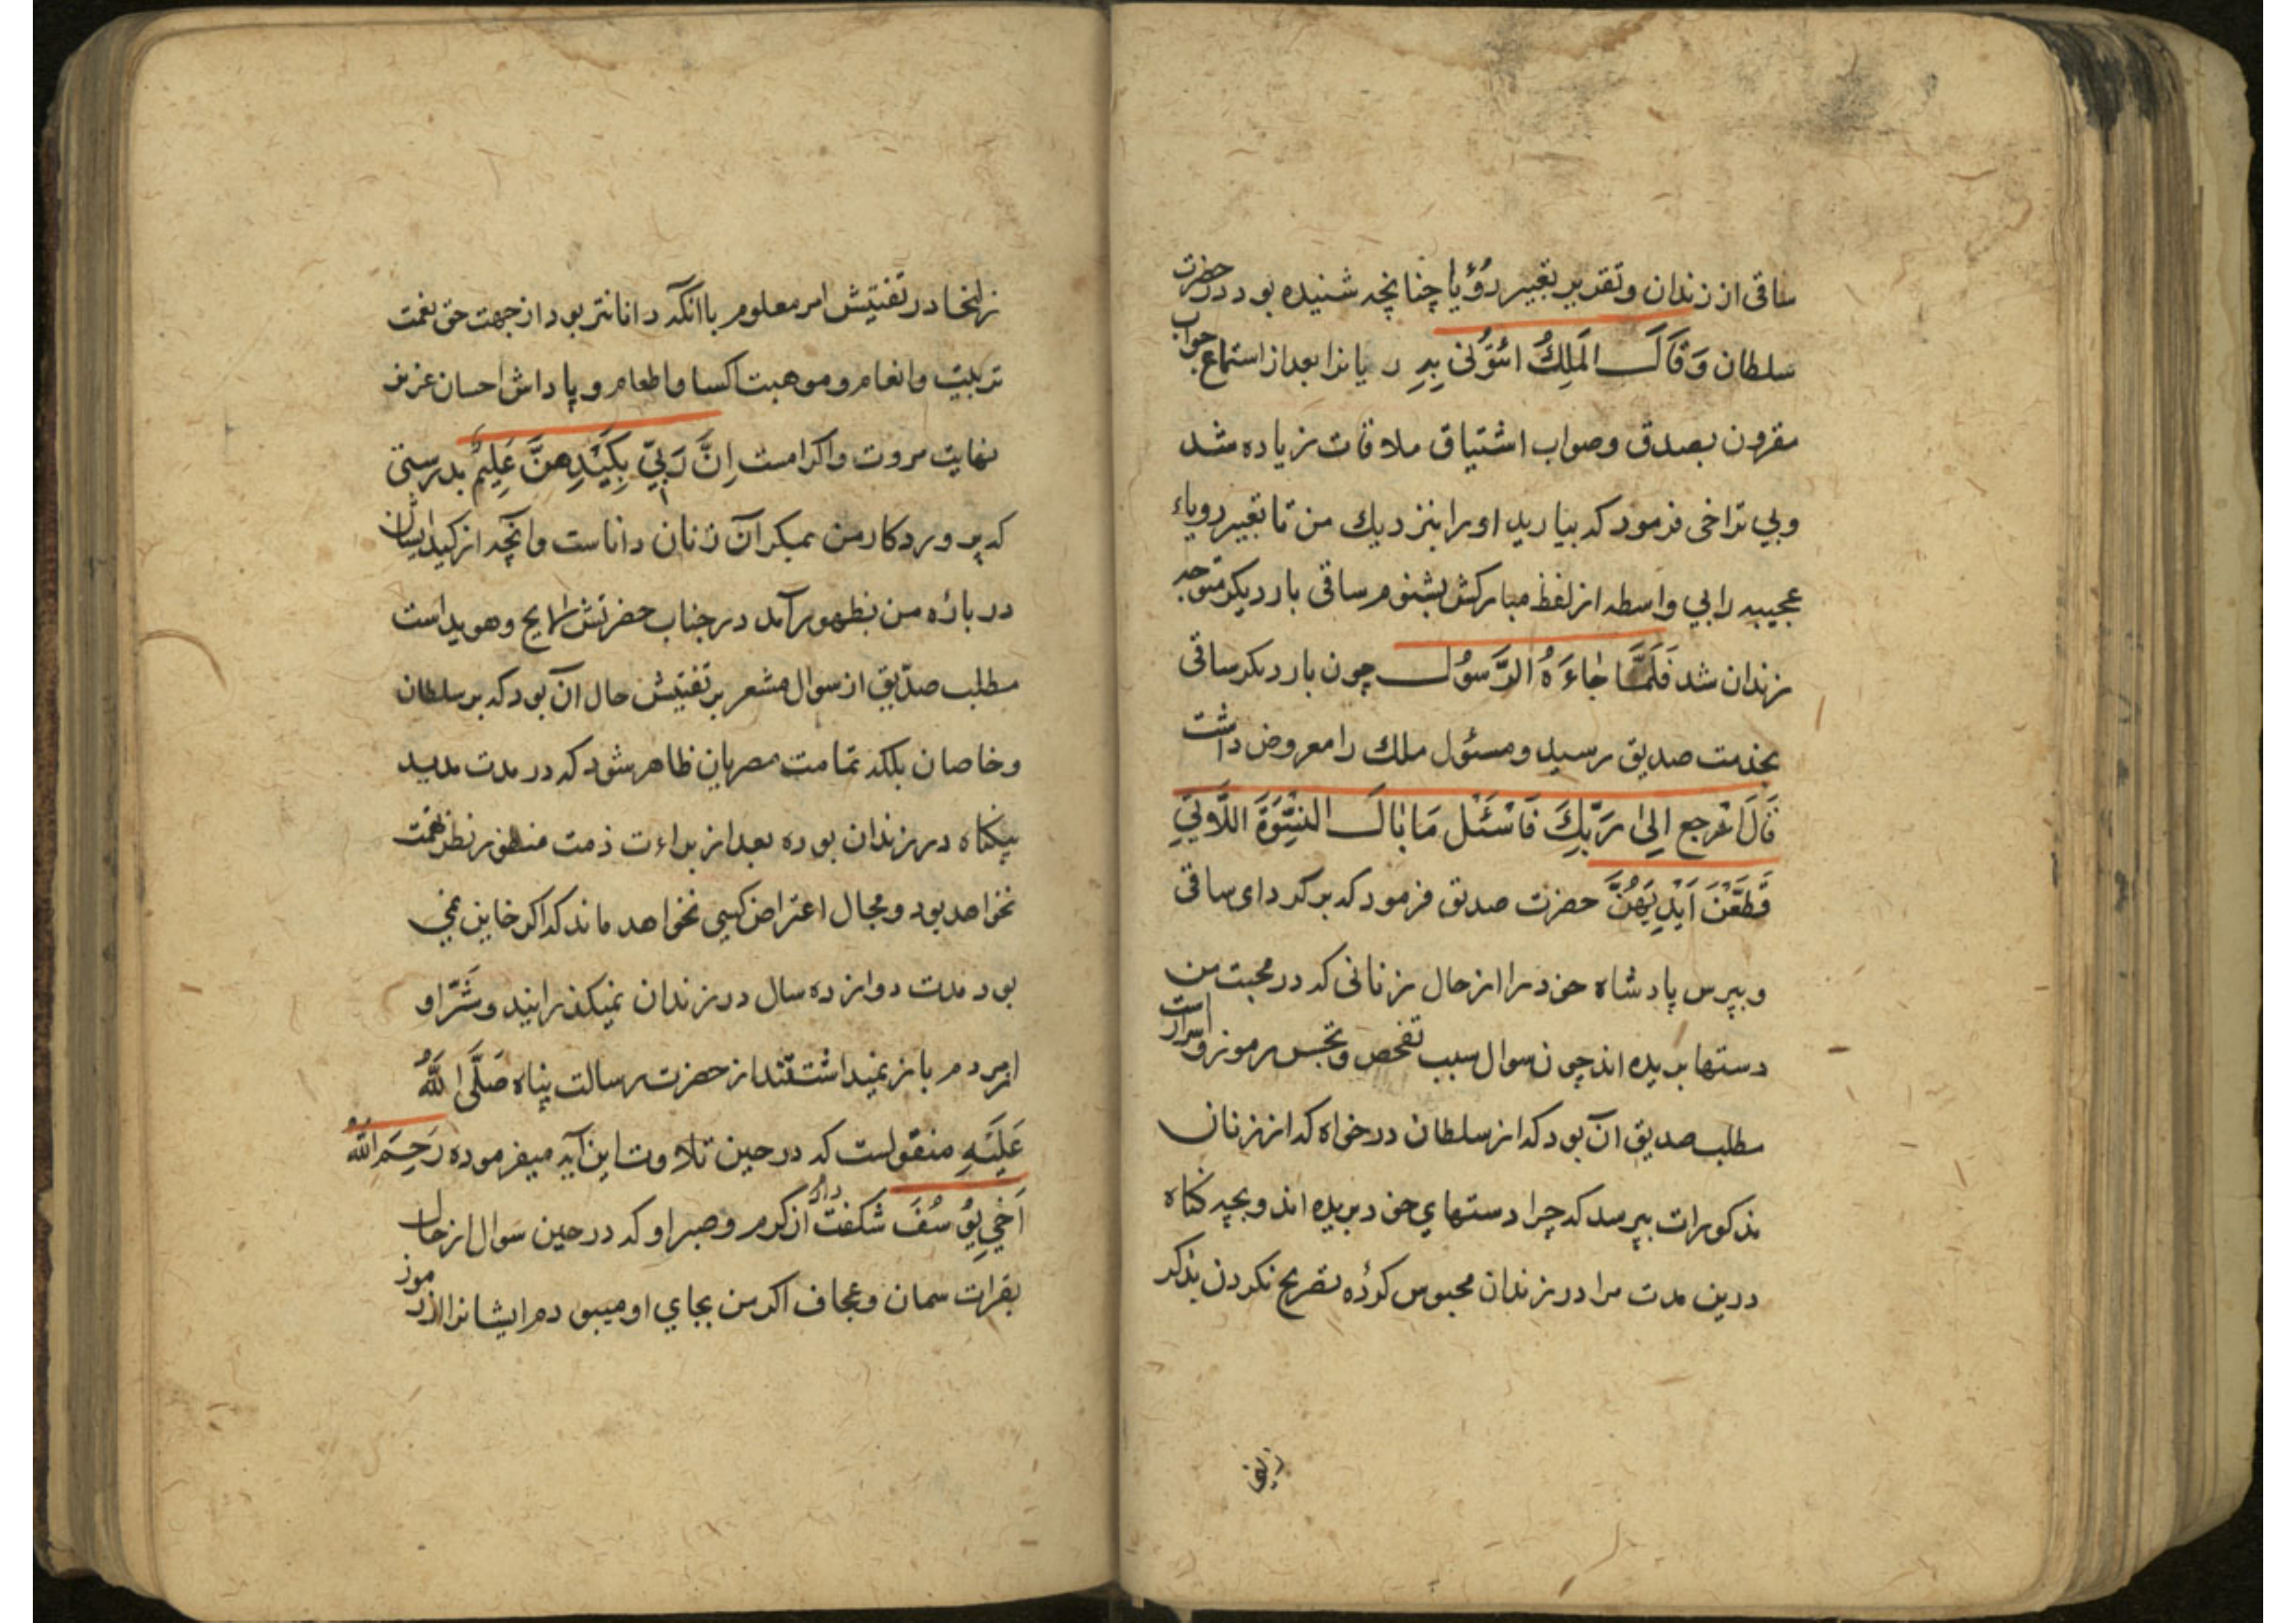 ساقی از زندان و تقدیر تعبیر رؤیا چنانچه شنیده بود در حضرت
سلطان وَقَالَ الْمَلِكُ ائْتُوْنِی بِهِ ریانرا بعد از استماع جواب
مقرون بصدق و صواب اشتیاق ملاقات زیاده شد
وبی تراخی فرمود که بیارید اورا بنزدیك من تا تعبیر رویاء
عجیبه رابی واسطه از لفظ مبارکش بشنوم ساقی بار دیکر متوجه
زندان شد فَلَمَّا جَاءَهُ الرَّسُوْلُ چون بار دیکر ساقی
بخدمت صدیق رسید و مسئول ملك را معروض داشت
قَالَ ارْجِع اِلیٰ رَبِّكَ فَاسْئَلْ مَا بَالَ النِّسْوَةِ اللَّاتِیْ
قَطَّعْنَ اَیْدِیَهُنَّ حضرت صدیق فرمود که برکرد ای ساقی
وبپرس پادشاه خود را از حال زنانی که در محبت من
دستها بریده اند چون سوال سبب تفحص و تجسس رموز و اسرار است
مطلب صدیق آن بود که از سلطان درخواه که از زنان
مذکورات بپرسد که چرا دستهاي خود بریده اند و بچه کناه
درین مدت مرا در زندان محبوس کرده تصریح نکردن بذکر
زلیخا
زلیخا در تفتیش امر معلوم باآنکه داناتر بود از جهت حق نعمت
تربیت و انعام و موهبت اکسا و اطعام و پاداش احسان عزیز
نهایت مروت و اکرامست اِنَّ رَبِّیْ بِكَیْدِهِنَّ عَلِیْمٌ بدرستی
که پروردکار من بمکر آن زنان داناست و آنچه از کید ایشان
در باره من بظهور آمد در جناب حضرتش لایح و هویداست
مطلب صدّیق از سوال مشعر بر تفتیش حال آن بود که بر سلطان
و خاصان بلکه تمامت مصریان ظاهر شود که در مدت مدید
بیکناه در زندان بوده بعد از براءت ذمت منظور نظر تهمت
نخواهد بود و مجال اعتراض کسی نخواهد ماند که اکر خاین نمی
بود مدت دوازده سال در زندان نمیکذرانیند و شَرّ او
از مردم باز نمیداشتند از حضرت رسالت پناه صَلَّی اللهُ
عَلَیْهِ منقولست که در حین تلاوت این آیه میفرموده رَحِمَ اللهُ
اَخِیْ یُوْسُفَ شکفت دارم از کرم و صبر او که در حین سوال از حال
بقرات سمان و عجاف اکر من بجاي او میبودم ایشانرا از رموز